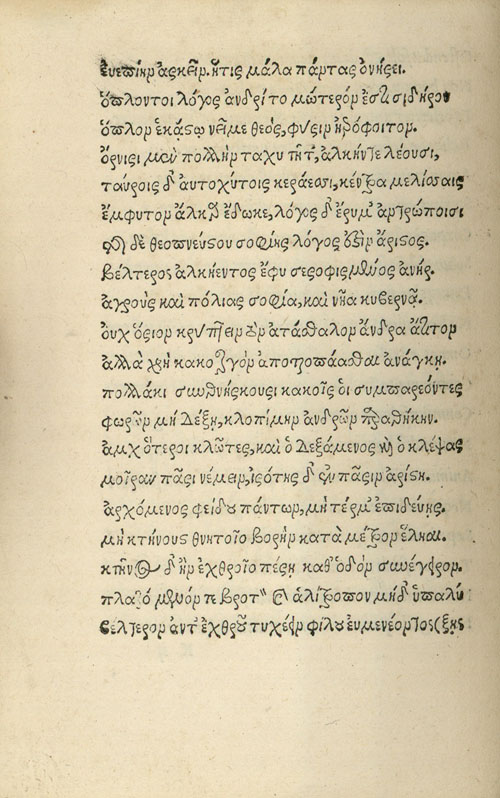 εὐεπίην ἀσκεῖν. ἥτις μάλα πάντας ὀνήσει.
ὅπλον τοι λόγος ἀνδρὶ τομώτερόν ἐστι σιδήρου
ὅπλον ἑκάστῳ νεῖμε θεός, φύσιν ἠερόφοιτον.
ὄρνισι μὲν πολλὴν ταχυτῆτ', ἀλκήν τε λέουσι,
ταύροις δ' αὐτοχύτοις κεράεσσι, κέντρα μελίσσαις
ἔμφυτον ἄλκαρ ἔδωκε, λόγος δ' ἔρυμ' ἀνθρώποισι
τῆς δὲ θεοπνεύστου σοφίης λόγος ἐστὶν ἄριστος.
βέλτερος ἀλκήεντος ἔφυ σεσοφισμένος ἀνήρ.
ἀγροὺς καὶ πόλιας σοφία, καὶ νῆα κυβερνᾷ.
οὐχ ὅσιον κρύπτειν τὸν ἀτάσθαλον ἄνδρα
ἀλλὰ χρὴ κακοεργὸν ἀποτροπάασθαι ἀνάγκη.
πολλάκι συνθνήσκουσι κακοῖς οἱ συμπαρεόντες
φωρῶν μὴ δέξῃ, κλοπίμην ἀνδρῶν παραθήκην.
ἀμφότεροι κλῶπες, καὶ ὁ δεξάμενος καὶ ὁ κλέψας
μοῖραν πᾶσι νέμειν, ἰσότης δ' ἐν πᾶσιν ἀρίστη.
ἀρχόμενος φείδου πάντων, μὴ τέρμ' ἐπιδεύῃς.
μὴ κτήνους θνητοῖο βορὴν κατὰ μέτρον ἕληαι.
κτῆνος δ' ἢν ἐχθροῖο πέσῃ καθ' ὁδὸν συνέγειρον.
βροτὸν καὶ ἀλίτροπον ὑπαλύ
βέλτερον ἀντ' ἐχθροῦ τυχέειν φίλου εὐμενέοντος (ξῃς